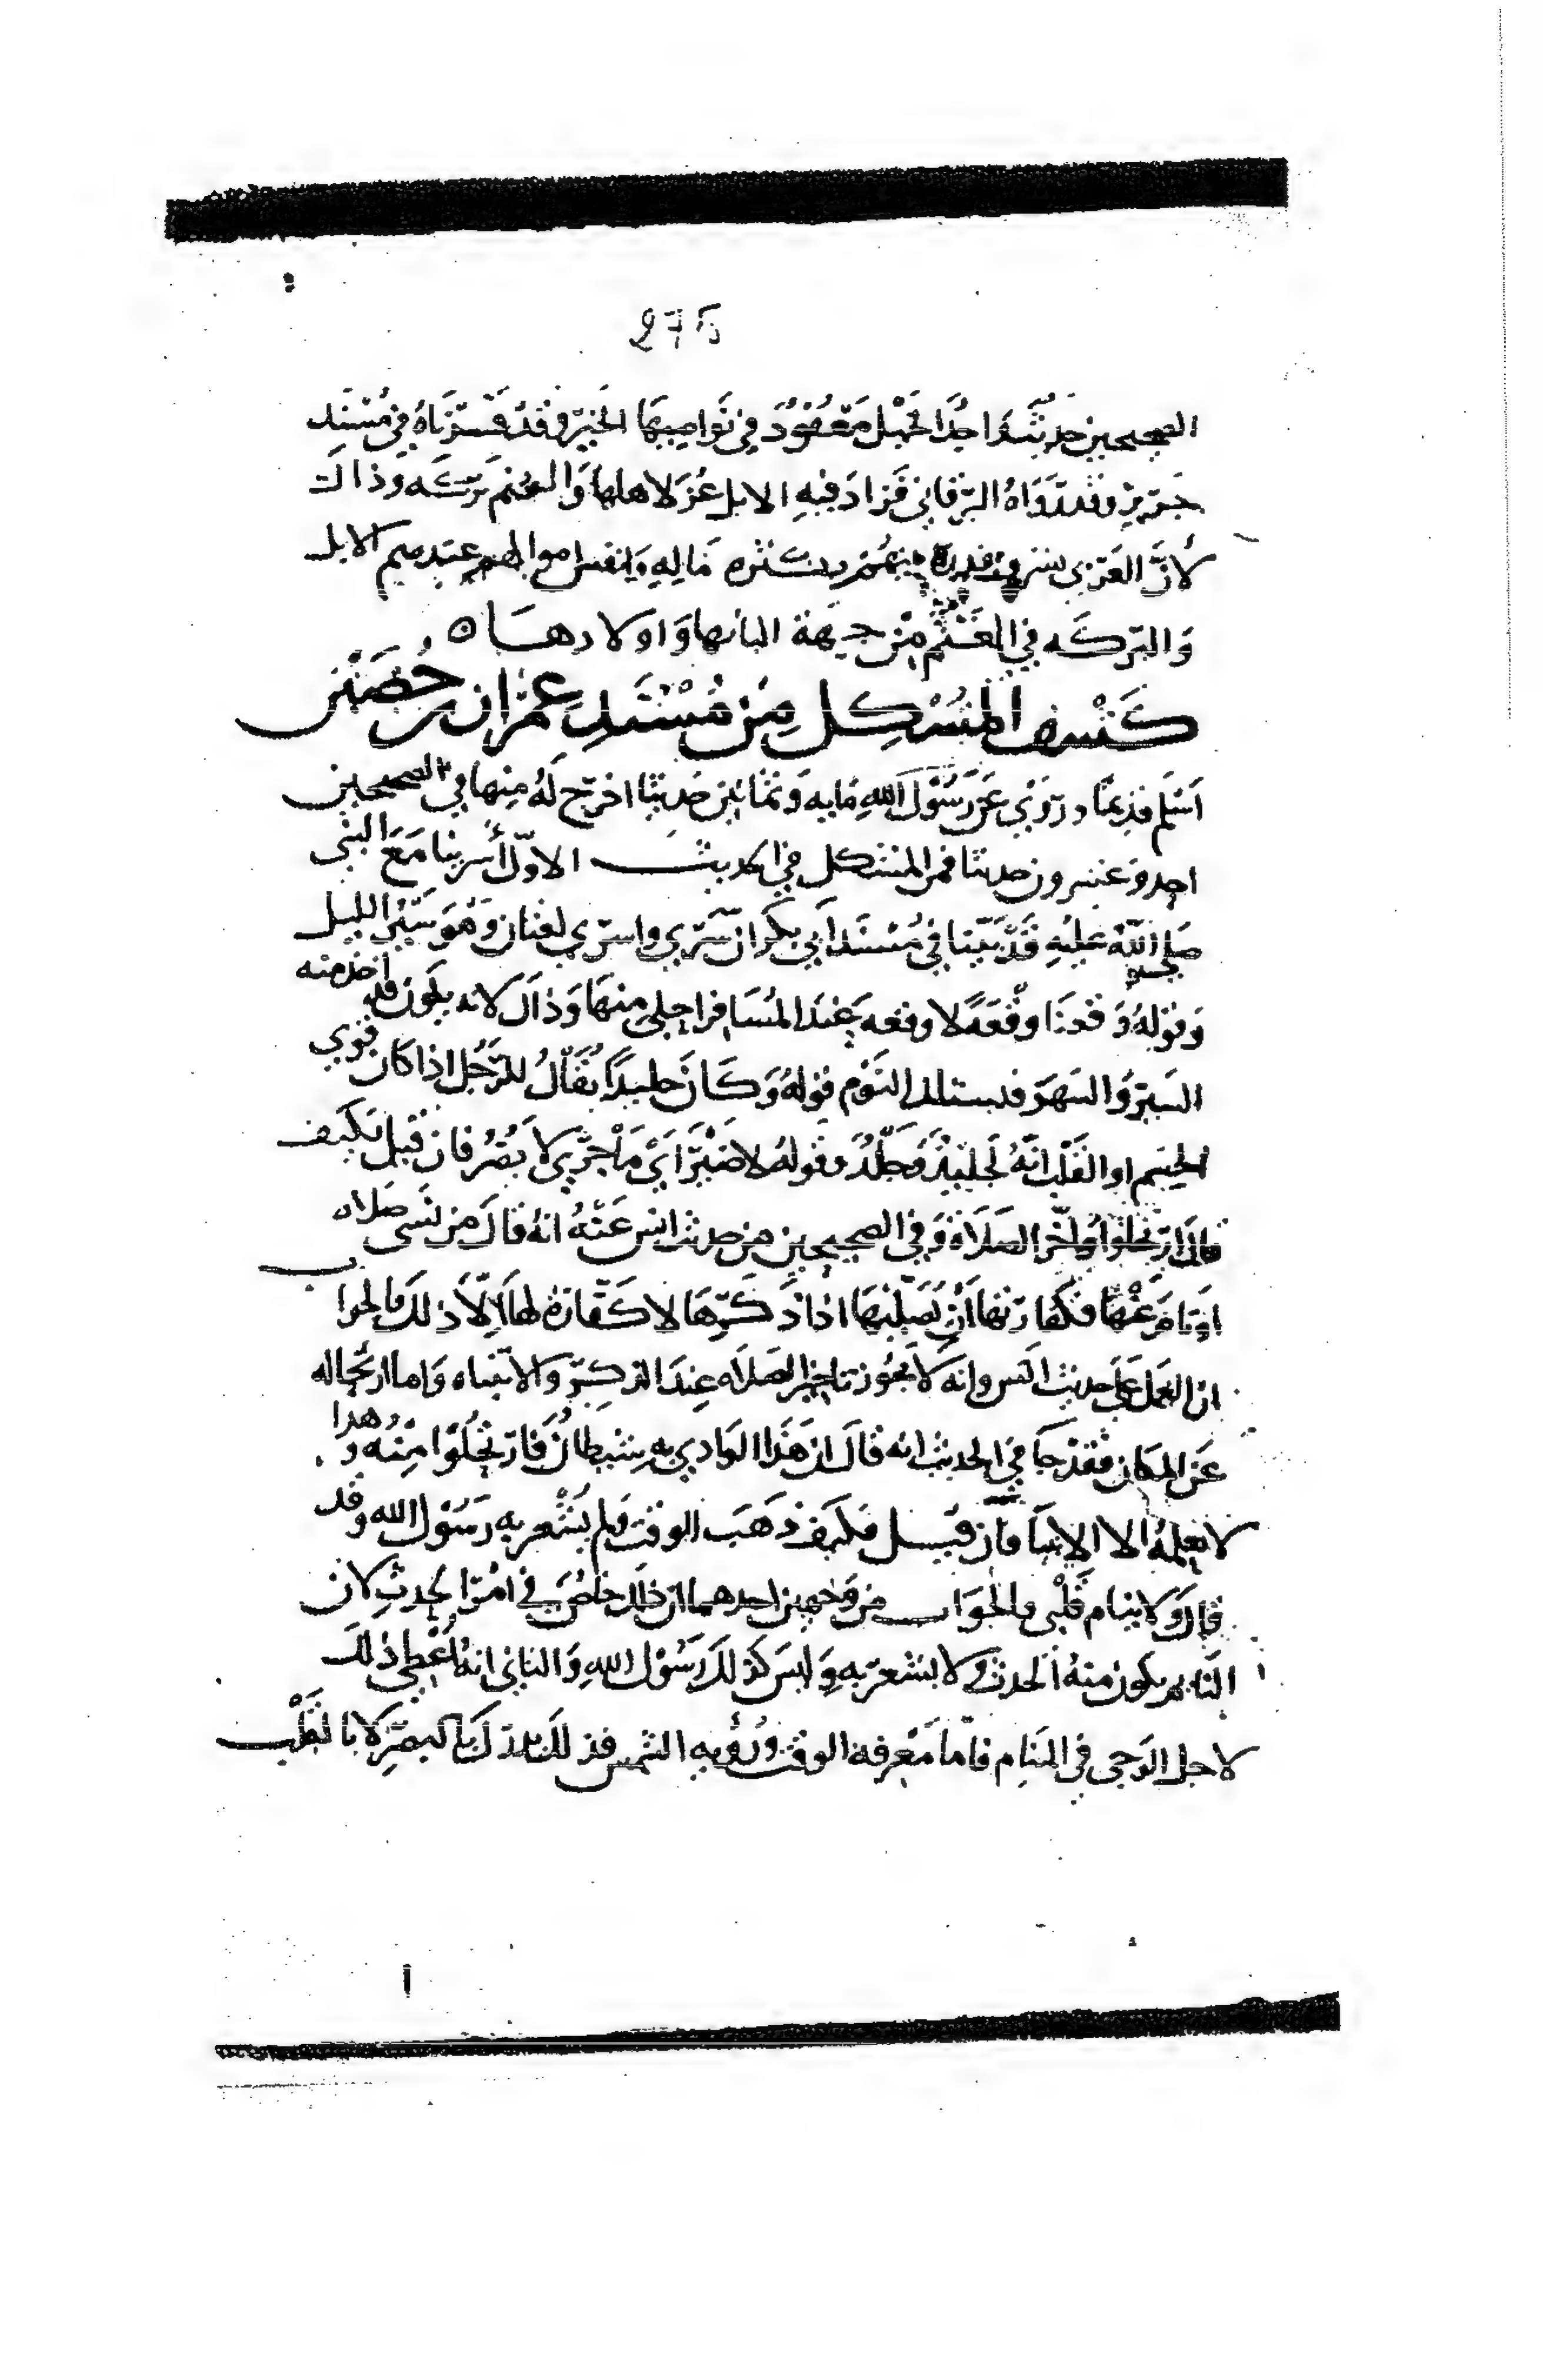 275
الصحيحين حديثا واحدا الخيل معقود في نواصيها الخير وقد فسرناه في مسند
جرير وقد رواه البرقاني فزاد فيه الابل عز لاهلها والغنم بركه وذاك
لأن العربي بكثره ماله وانفس اموالهم عندهم الابل
والبركه في الغنم من جهة البانها واولادها ه
كشف المشكل من مسند عمران بن حصين
اسلم قديما وروي عن رسول الله مايه وثمانين حديثا اخرج له منها في الصحيحين
احد وعشرون حديثا فمن المشكل في الحديث الاول أسرينا مع النبي
صلى الله عليه وسلم قد بينا في مسند أبي بكر ان سري واسري لغتان وهو سير الليل
وقوله وقعنا وقعة لا وقعه عند المسافر احلى منها وذاك لانه يكون قد اخذ منه
السير والسهر فيستلذ النوم قوله وكان جليدا يقال للرجل اذا كان قوي
الجسم او القلب انه لجليد وجلد وقوله لا ضير أي ما جرى لا يضر فان قيل فكيف
قال ارتحلوا وأخر الصلاة وفي الصحيحين من حديث انس عنه انه قال من نسي صلاه
او نام عنها فكفارتها أن يصليها اذا ذكرها لا كفارة لها إلا ذلك فالجواب
ان العمل على حديث انس وانه لا يجوز تاخير الصلاه عند الذكر والانتباه واما ارتحاله
عن المكان فقد جا في الحديث انه قال ان هذا الوادي به شيطان فارتحلوا منه وهذا
لا يعلمه الا الانبيا فان قيل فكيف ذهب الوقت فلم يشعر به رسول الله وقد
قال ولا ينام قلبي فالجواب من وجهين احدهما ان ذلك خاص في امر الحدث لان
النايم يكون منه الحدث ولا يشعر به وليس كذلك رسول الله والثاني انه أعطي ذلك
لاجل الوحي في المنام فاما معرفة الوقت ورؤيه الشمس فذلك يدرك بالبصر لا بالقلب